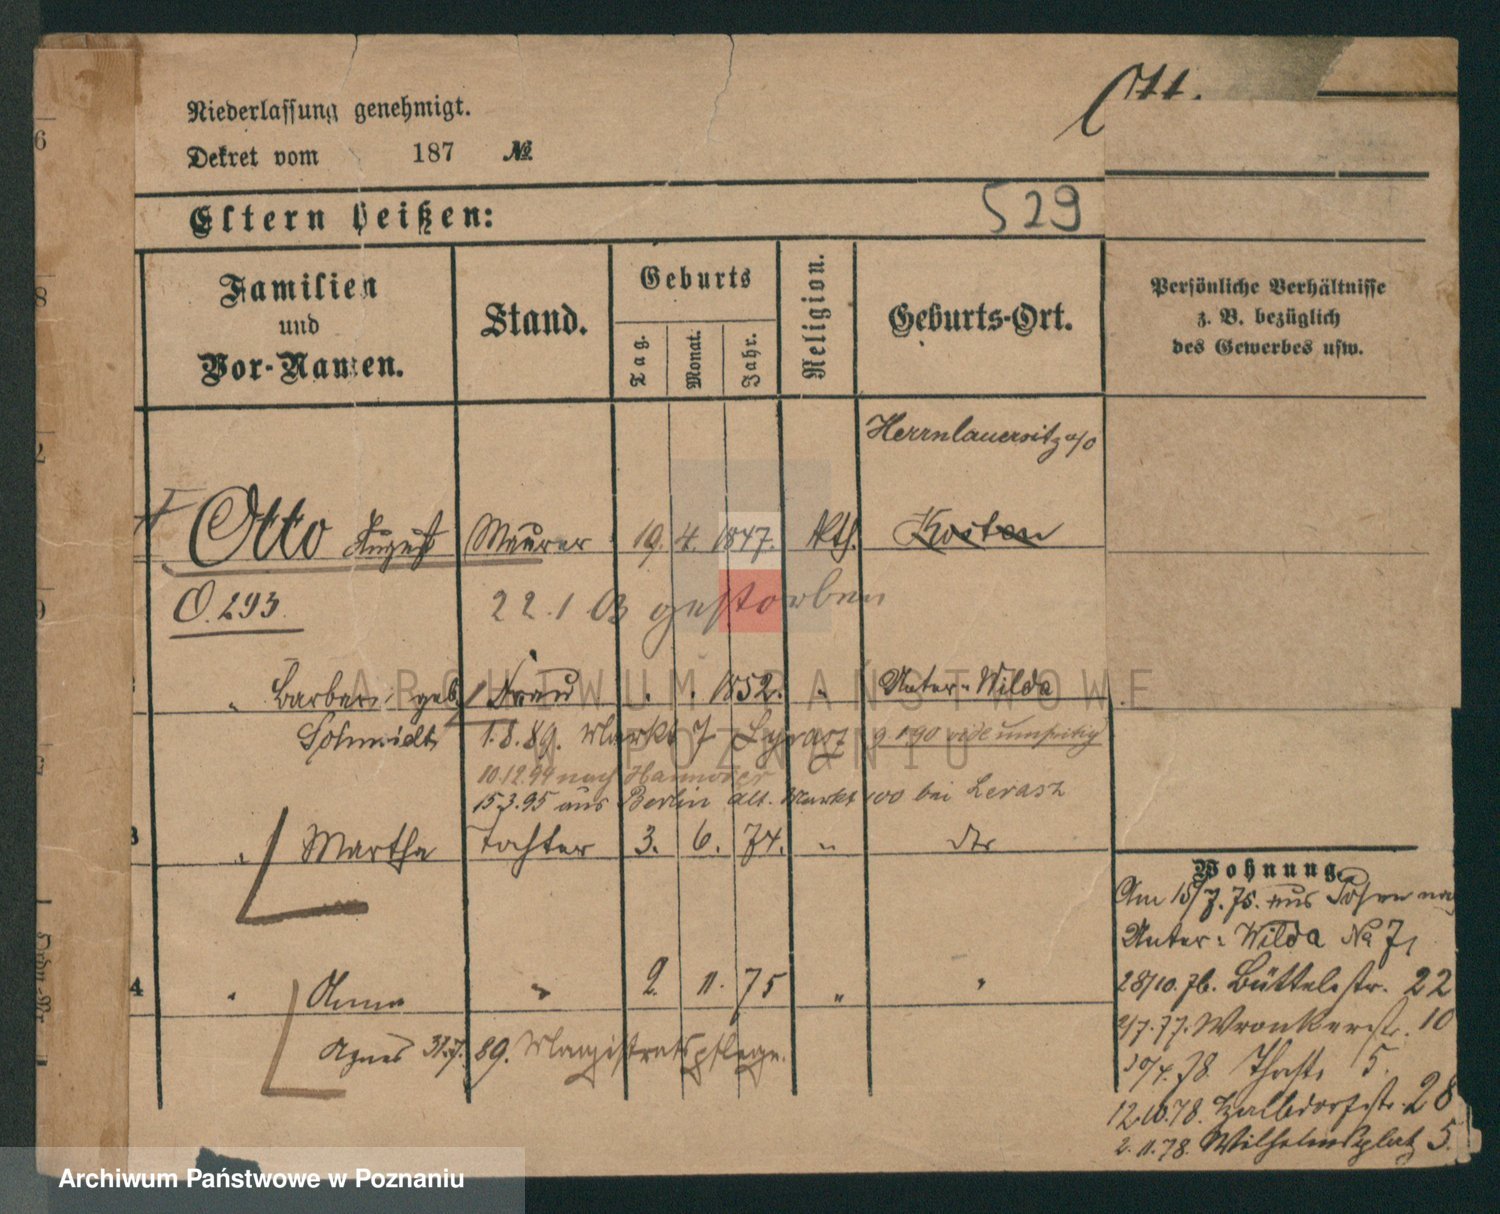 Ott.
Niederlassung genehmigt.
Dekret vom 187 №
Eltern heißen:
529
Familien
und
Vor-Namen.
Stand.
Geburts
Tag.
Monat.
Jahr.
Religion.
Geburts-Ort.
Persönliche Verhältnisse
z. B. bezüglich
des Gewerbes usw.
Herrnlauersitz a/O
Otto August Maurer 19. 4. 1847. kth. Kosten
O. 293.
22. 1 03 gestorben
" Barbara geb. Frau . . 1852. " Unter-Wilda
Schmidt 1.8.89. Markt 7 9.1.90 vide
10.12.94 nach Hannover
15.3.95 aus Berlin Alt. Markt 100 bei Lerasz
3 " Martha Tochter 3. 6. 74. " dto
4 " Anna " 2. 11. 75 " "
Agnes 31.7.89. Magistratspflege.
Wohnung.
Am 15/7. 75. aus Posen nach
Unter-Wilda No 71
28/10. 76. Büttelstr. 22
2/7. 77. Wronkerstr. 10
78. 5.
12.10.78. Halbdorfstr. 28
2.11.78. Wilhelmsplatz 5.
ARCHIWUM PAŃSTWOWE
W POZNANIU
Archiwum Państwowe w Poznaniu